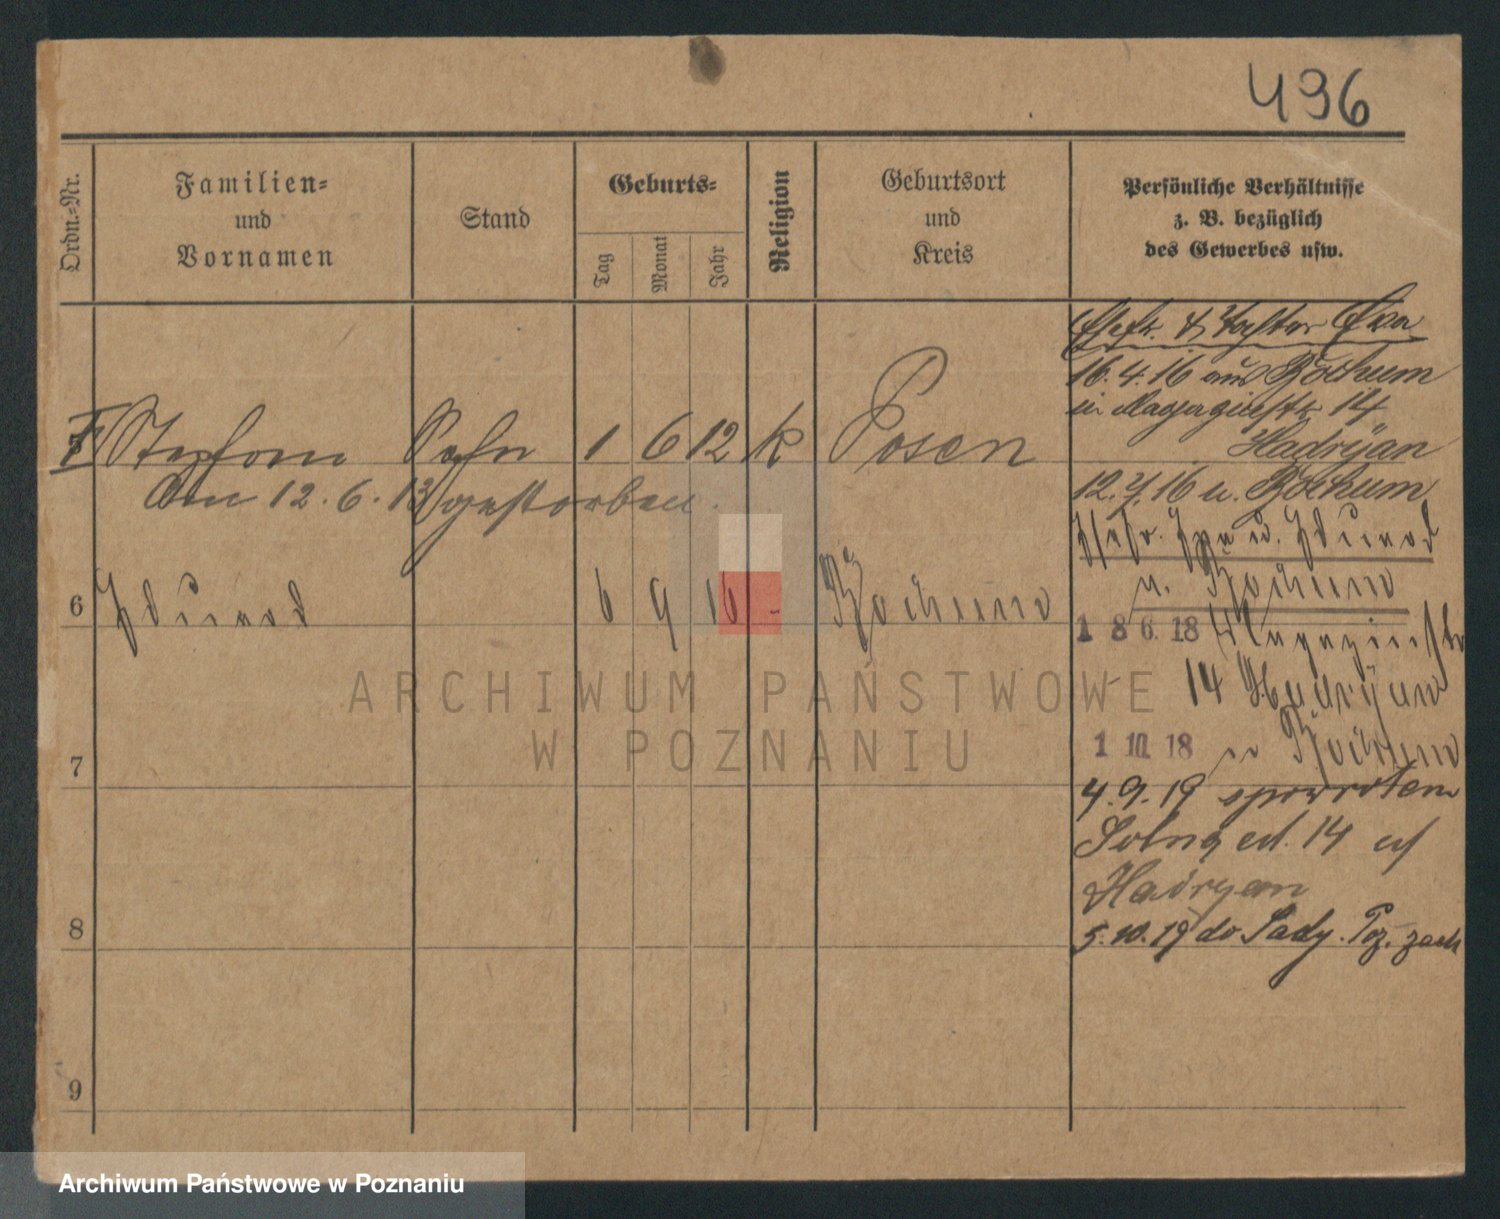 496
Ordn.=Nr.
Familien=
und
Vornamen
Stand
Geburts=
Tag
Monat
Jahr
Religion
Geburtsort
und
Kreis
Persönliche Verhältnisse
z. B. bezüglich
des Gewerbes usw.
Ehefr. & Tochter Eva
16.4.16 aus Bochum
in Magazinstr 14
Hadryan
Stefan Sohn 1 6 12 k Posen
12.7.16 n. Bochum
Am 12.6.13 gestorben.
Ehefr. u. Eduard
n. Bochum
6 Eduard 6 9 16 - Bochum
1 8 6. 18 Magazinstr
14 Hadryan
1 10 18 n Bochum
7
4.9.19 spowrotem
Solna 14
Hadryan
8
5.10.19 do Sady. Poz. zach
9
ARCHIWUM PAŃSTWOWE
W POZNANIU
Archiwum Państwowe w Poznaniu